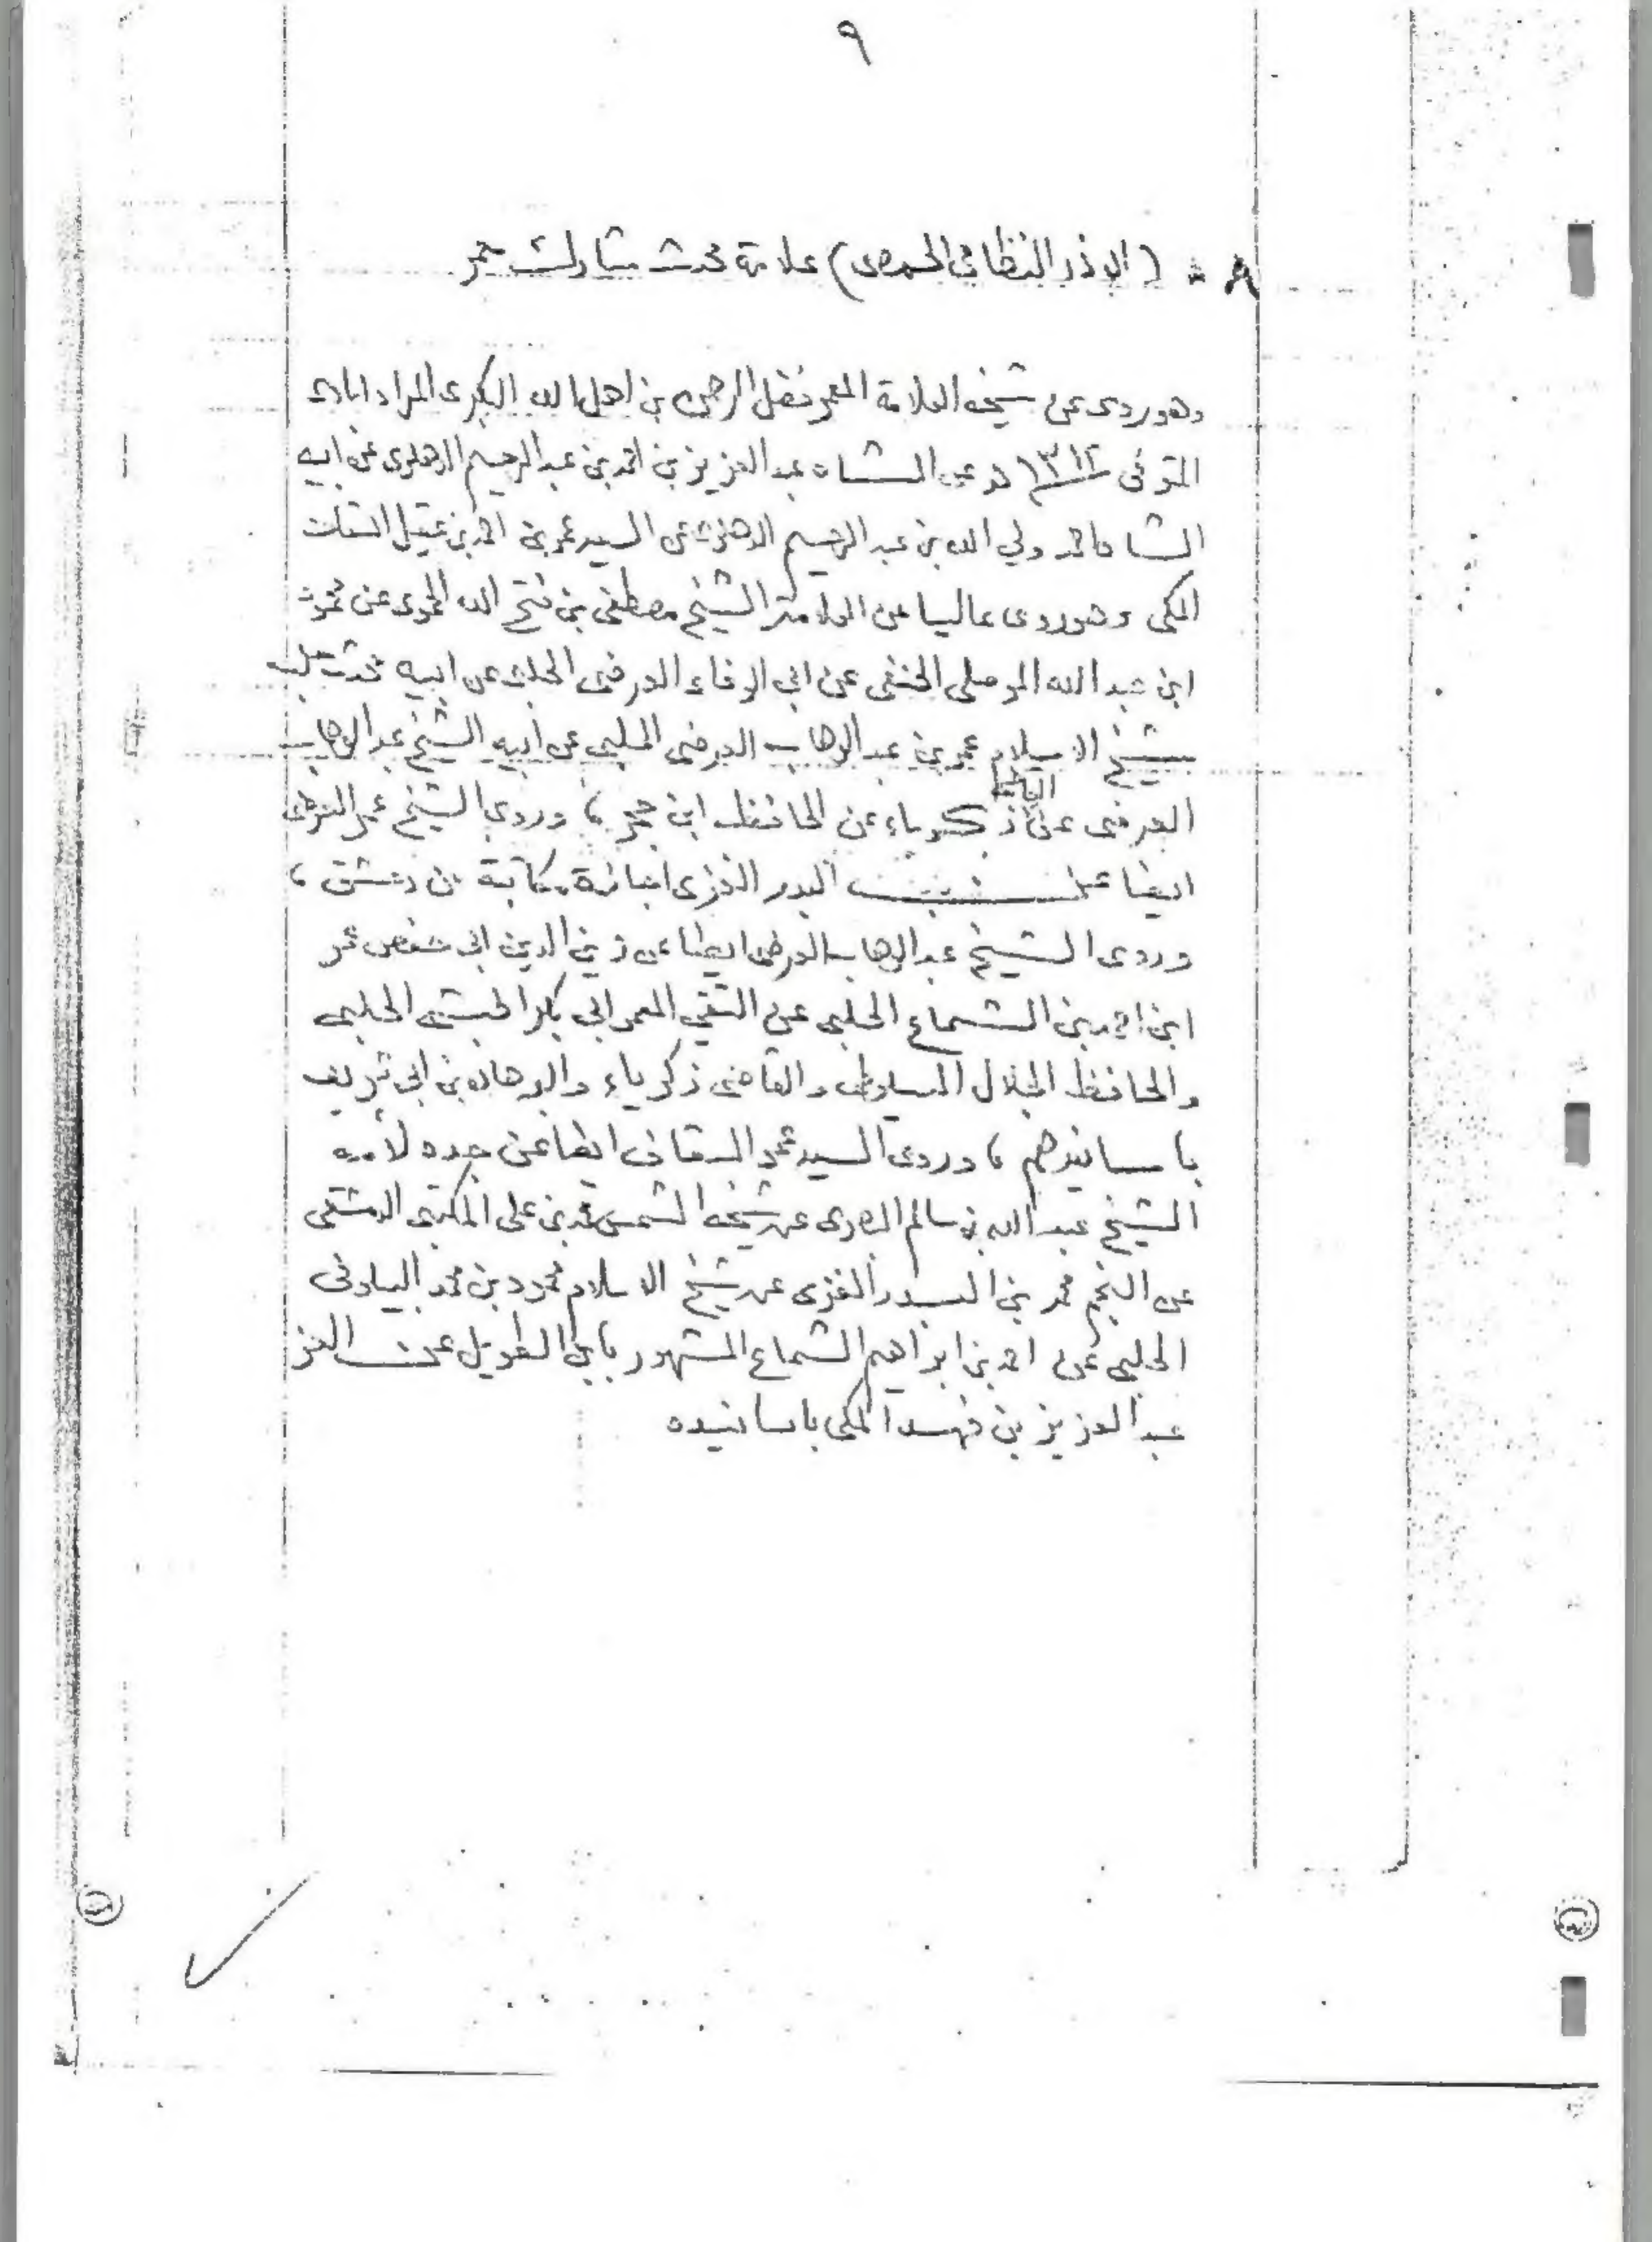 ٩
٨ ـ (ابو ذر النظامي الحمصي) علامة محدث مشارك معمر
وهو روى عن شيخه العلامة المعمر فضل الرحمن بن اهل الله البكري المراد ابادي
المتوفى ١٣١٣ هـ عن الشاه عبد العزيز بن احمد بن عبد الرحيم الدهلوي عن ابيه
الشاه احمد ولي الله بن عبد الرحيم الدهلوي عن السيد عمر بن احمد بن عقيل السقاف
المكي وهو روى عاليا عن العلامة الشيخ مصطفى بن فتح الله الحموي عن محمود
ابن عبد الله الموصلي الحنفي عن ابي الوفاء العرضي الحلبي عن ابيه محدث حلب
شيخ الاسلام عمر بن عبد الوهاب العرضي الحلبي عن ابيه الشيخ عبد الوهاب
العرضي عن القاضي زكرياء عن الحافظ ابن حجر ، وروى الشيخ عمر العرضي
ايضا عن البدر الغزي اجازة مكاتبة من دمشق ،
وروى الشيخ عبد الوهاب العرضي ايضا عن زين الدين ابي حفص عمر
ابن احمد بن الشماع الحلبي عن التقي المعمر ابي بكر الحبيشي الحلبي
والحافظ الجلال السيوطي والقاضي زكرياء والبرهان بن ابي شريف
باسانيدهم ، وروى السيد عمر السقاف ايضا عن جده لأمه
الشيخ عبد الله بن سالم البصري عن شيخه الشمس محمد بن علي المكتبي الدمشقي
عن النجم محمد بن البدر الغزي عن شيخ الاسلام محمود بن محمد البيلوني
الحلبي عن احمد بن ابراهيم الشماع المشهور بابن الطويل عن العز
عبد العزيز بن فهد المكي باسانيده